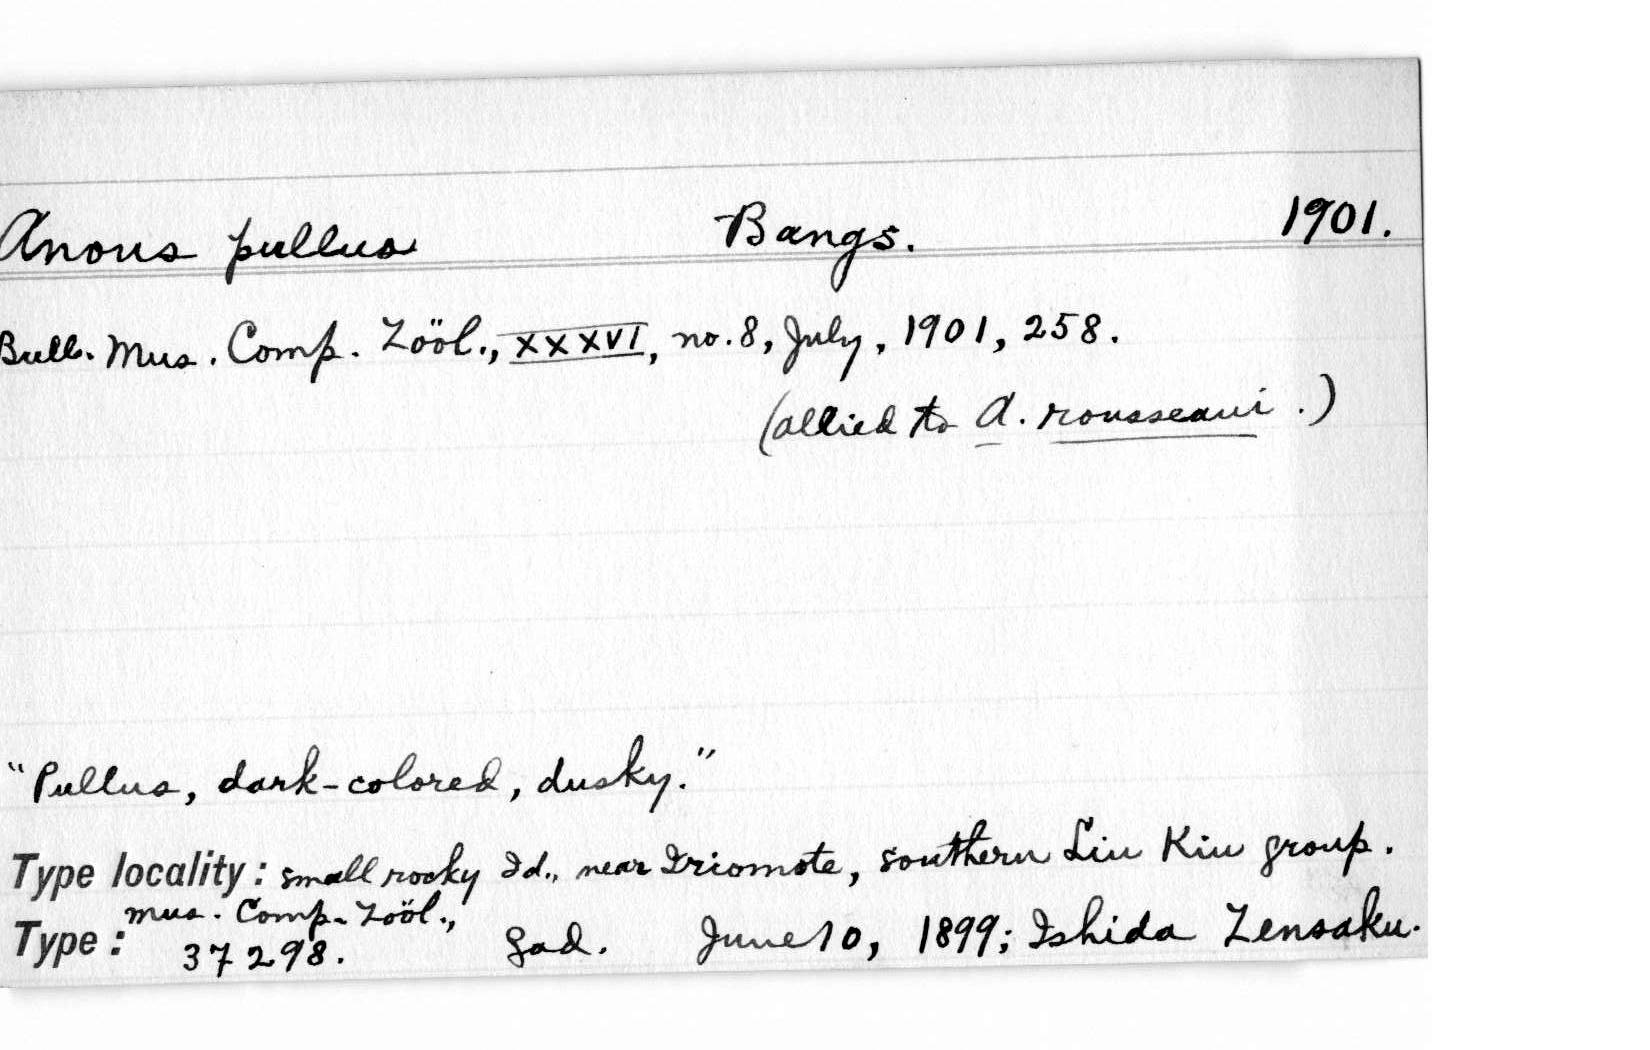 Anous pullus Bangs. 1901.
Bull. Mus. Comp. Zoöl., XXXVI, no. 8, July, 1901, 258.
(allied to A. rousseaui.)
"Pullus, dark-colored, dusky."
Type locality: small rocky Id., near Iriomote, southern Liu Kiu group.
Mus. Comp. Zoöl.,
Type: 37298. ♀ad. June 10, 1899; Ishida Zensaku.